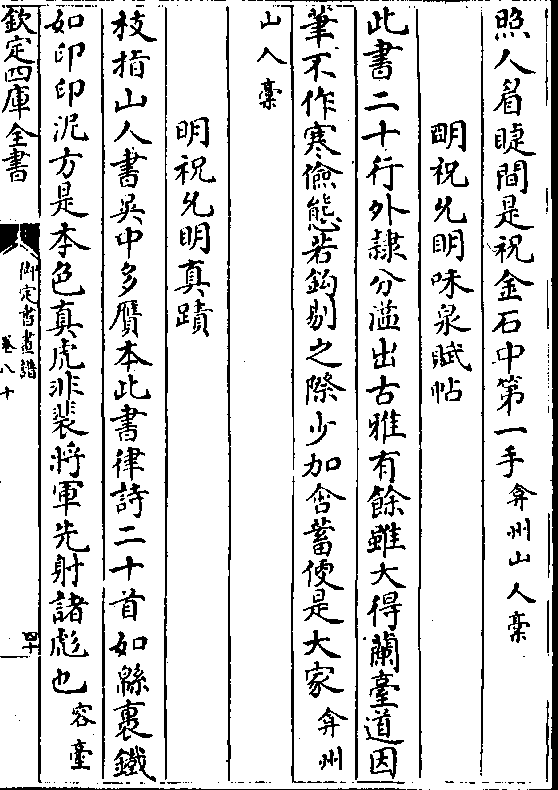 照人眉睫間是祝金石中第一手弇州山人藁
明祝允明味泉賦帖
此書二十行外隸分溢出古雅有餘雖大得蘭臺道因
筆不作寒儉態若鉤剔之際少加含蓄便是大家弇州
山人藁
明祝允明真蹟
枝指山人書吳中多贗本此書律詩二十首如緜裹鐵
如印印泥方是本色真虎非裴將軍先射諸彪也容臺
欽定四庫全書
御定書畫譜
卷八十
四十